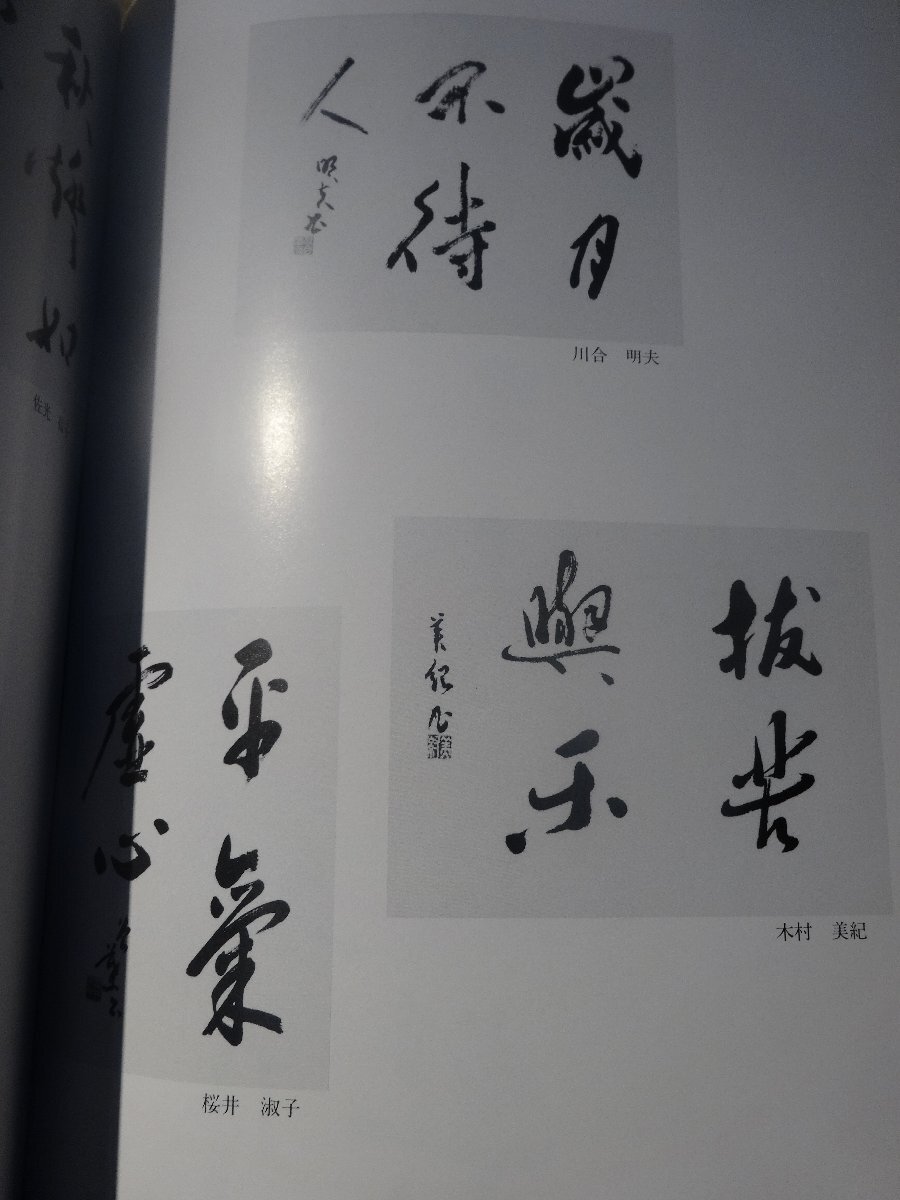 歳月
不待
人
明夫書
川合 明夫
抜苦
與樂
美紀書
木村 美紀
平氣
虚心
桜井 淑子